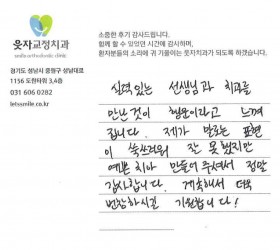 소중한 후기 감사드립니다.
함께 할 수 있었던 시간에 감사하며,
환자분들의 소리에 귀 기울이는 웃자치과가 되도록 하겠습니다.
웃자교정치과
smile orthodontic clinic
경기도 성남시 중원구 성남대로
1156 도원타워 3,4층
031 606 0282
letssmile.co.kr
실력있는 선생님과 치과를
만난것이 행운이라고 느껴
집니다. 제가 말로는 표현
이 쑥쓰러워 잘 못했지만
예쁜 치아 만들어 주셔서 정말
감사합니다. 계속해서 더욱
번창하시길 기원합니다!